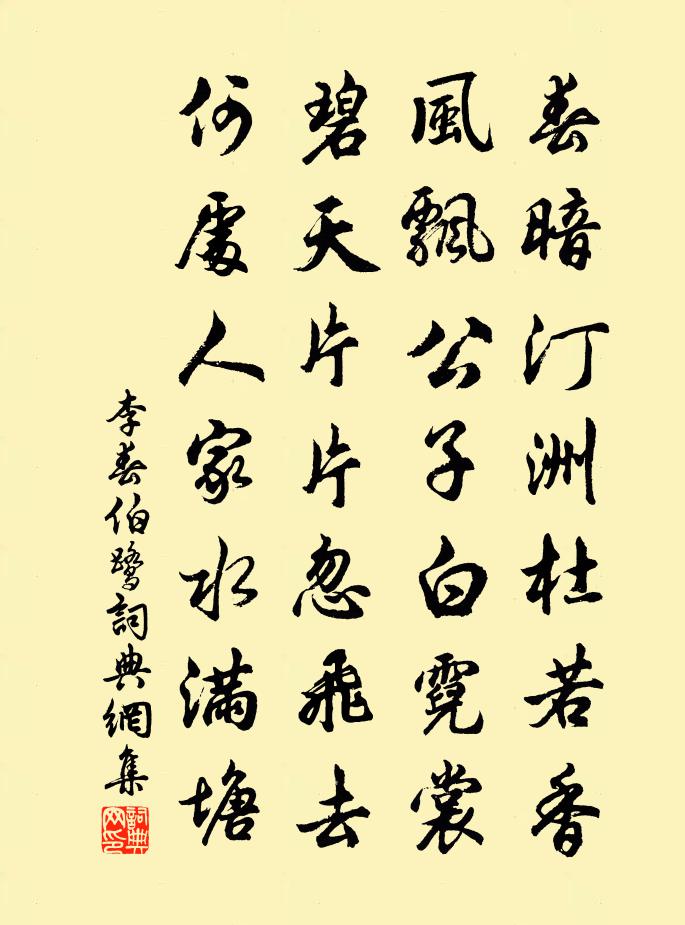 春暗汀洲杜若香
風飄公子白霓裳
碧天片片忽飛去
何處人家水滿塘
李春伯鷺詞典網集
詞典網印